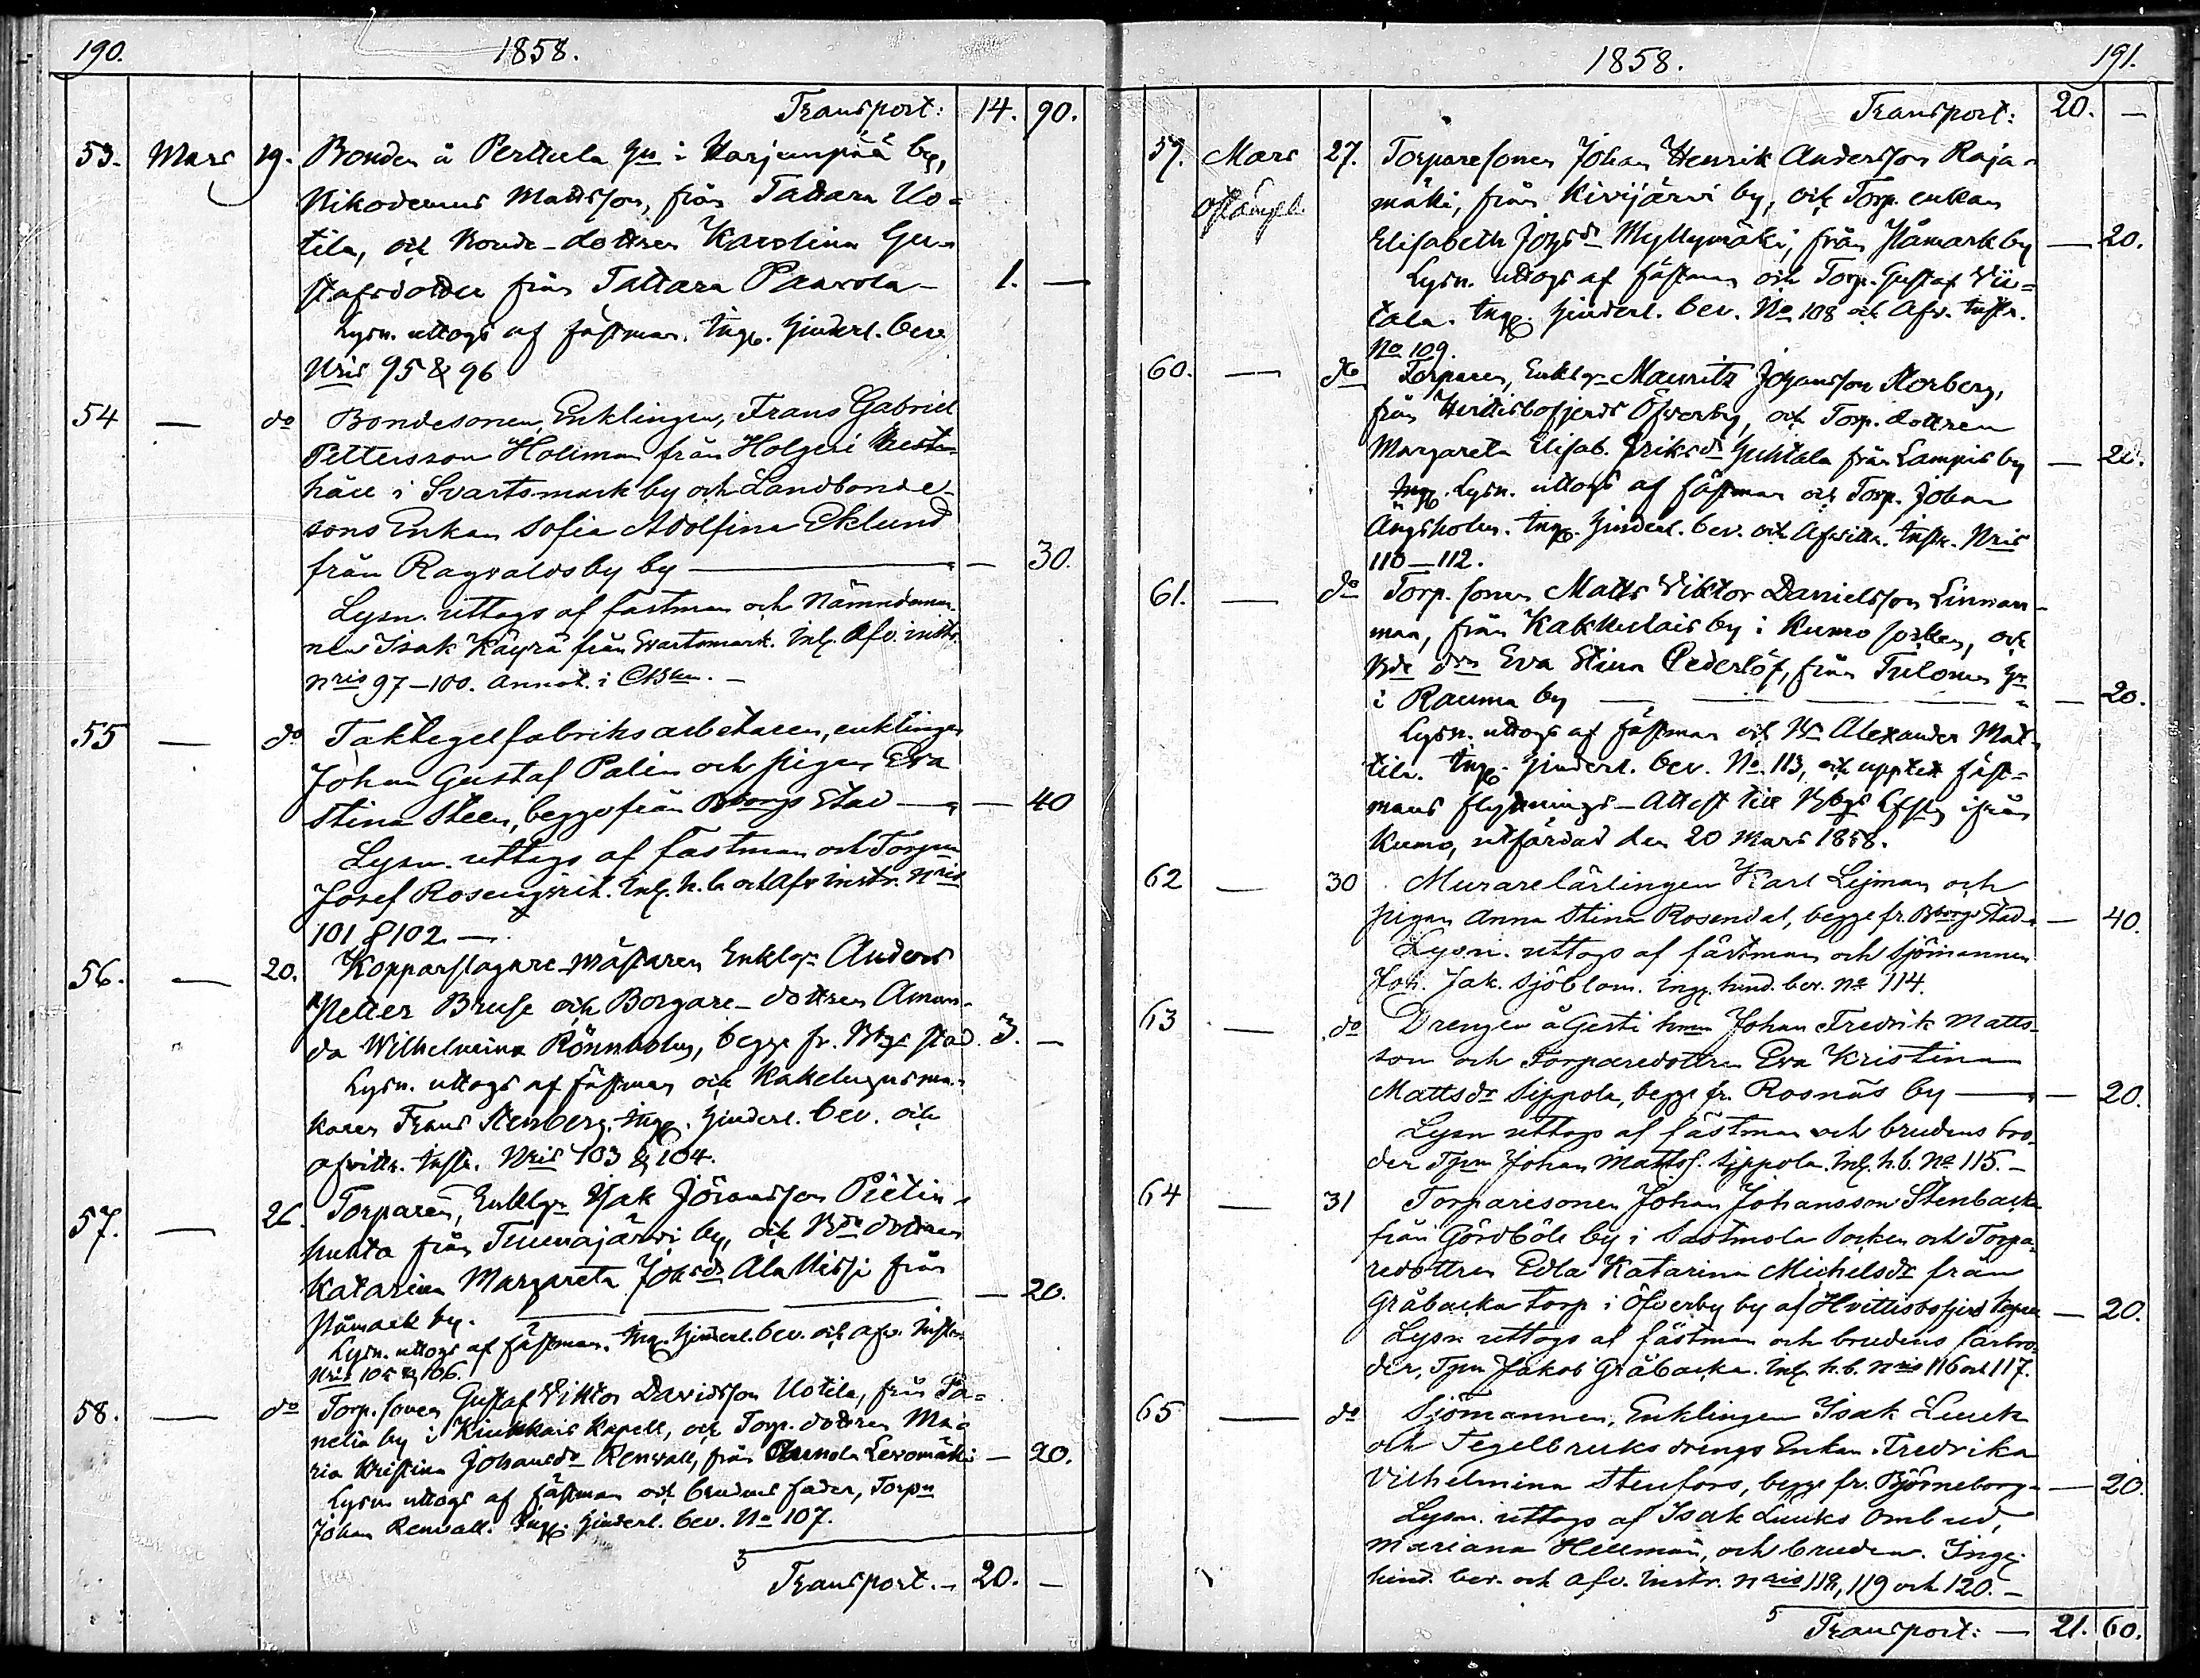 190. 1858.
Transport: 14. 90.
53. Mars 19. Bonden å Perttula hn i Harjunpää by,
Nikodemus Mattsson, från Tattara Uo-
tila, och Bonde-dottren Karolina Gu-
stafsdotter från Tattara Paavola 1. —
Lysn. uttogs af fästman. Ing. hinderl. bev.
Nris 95 & 96
54 — do Bondesonen, Enklingen, Frans Gabriel
Pettersson Holiman från Holgeri
håll i Svartsmark by och Landbonde-
sons Enkan Sofia Adolfina Eklund
från Ragvaldsby by — — 30.
Lysn. uttogs af fästman och Nämndeman-
nen Isak Käyrä från Svartsmark. Inl. Afv. instr.
nris 97-100. Annot. i CBken. —
55 — do Taktegelfabriksarbetaren, enklingen
Johan Gustaf Palin och pigan Eva
Stina Steen, begge från Bborgs Stad — — 40
Lysn. uttogs af fästman och Torpn
Josef Rosenqvist. Inl. h. b. och Afv. instr. Nris
101 & 102 —
56. — 20. Kopparslagare-mästaren Enklgn Anders
Petter Bruse och Borgare-dottren Aman-
da Wilhelmina Rönnholm, begge fr. Bbgs stad. 3. —
Lysn. uttogs af fästman och Kakelugnsma-
karen Frans Stenberg. Ing. hinderl. bev. och
afvittr. Instr. Nris 103 & 104.
57. — 26. Torparen, Enklgn Isak Johansson Pietin-
huhta från Tuunajärvi by, och Bde dottren
Katarina Margareta Johsdr Ala Nissi från
Påmark by. — — — 20.
Lysn. uttogs af fästman. Ing. hinderl. bev. och afv. Instr.
Nris 105 & 106.
58. — do Torp. sonen Gustaf Viktor Davidsson Uotila, från Pa-
nelia by i Kiukkais Kapell, och Torp. dottren Ma-
ria Kristina Johansdr Renvall, från Levomäki — 20.
Lysn uttogs af fästman och brudens fader, Torpn
Johan Renvall. Ing. hinderl. bev. No 107.
Transport. — 20. —
1858. 191.
Transport: 20. —
59. Mars 27. Torparesonen Johan Henrik Andersson Raja-
mäki, från Kivijärvi by, och Torp. enkan
Elisabeth Johsdr Myllymäki, från Påmark by — 20.
Lysn. uttogs af fästman och Torp. Gustaf Vii-
tala. Ing. hinderl. bev. No 108 och Afv. Instr.
No 109.
60. — do Torparen, Enklgn Mauritz Johansson Norberg,
från Hvittisbofjerds Öfverby, och Torp. dottren
Margareta Elisab. Eriksdr Juhtala från Lampis by — 20.
Lysn. uttogs af fästman och Torp. Johan
Ängsholm. Ing. hinderl. bev. och Afvittr. Instr. Nris
110—112.
61. — do Torp. sonen Matts Viktor Danielsson Linnan-
maa, från Kakkulais by i Kumo socken, och
Bde drn Eva Stina Cederlöf, från Tulonen hn
i Rauma by — — — 20.
Lysn. uttogs af fästman och Bn Alexander Mat-
tila. Ing. hinderl. bev. No 113, och upptett fäst-
mans flyttnings-Attest till Bbgs från
Kumo, utfärdad den 20 Mars 1858.
62 — 30 Murarelärlingen Karl Lejman och
pigan Anna Stina Rosendal, begge fr. Bborgs Stad — 40.
Lysn. uttogs af fästman och Sjömannen
Joh. Jak. Sjöblom. Ing. hind. bev. No 114.
63 — do Drengen å Gesti hmn Johan Fredrik Matts-
son och Torparedottren Eva Kristina
Mattsdr Sippola, begge fr. Rosnäs by — — 20.
Lysn uttogs af fästman och brudens bro-
der Tpn Johan Mattss. Sippola. Inl. h. b. No 115. —
64 — 31 Torparesonen Johan Johansson Stenbacka
från Gördböle by i Sastmola Socken och Torpa-
redottren Edla Katarina Michelsdr från
Gråbacka torp i Öfverby by af Hvittisbofjerd Kapell — 20.
Lysn uttogs af fästman och brudens farbro-
der, Tpn Jakob Gråbacka. Inl. h. b. nris 116 och 117.
65 — do Sjömannen, Enklingen Isak Luuk
och Tegelbruks drengs Enkan Fredrika
Vilhelmina Stenfors, begge fr. Björneborg — 20.
Lysn. uttogs af Isak Luuks ombud,
Mariana Hellman, och bruden. Ing.
hind. bev. och afv. instr. nris 118, 119 och 120. —
Transport: — 21. 60.